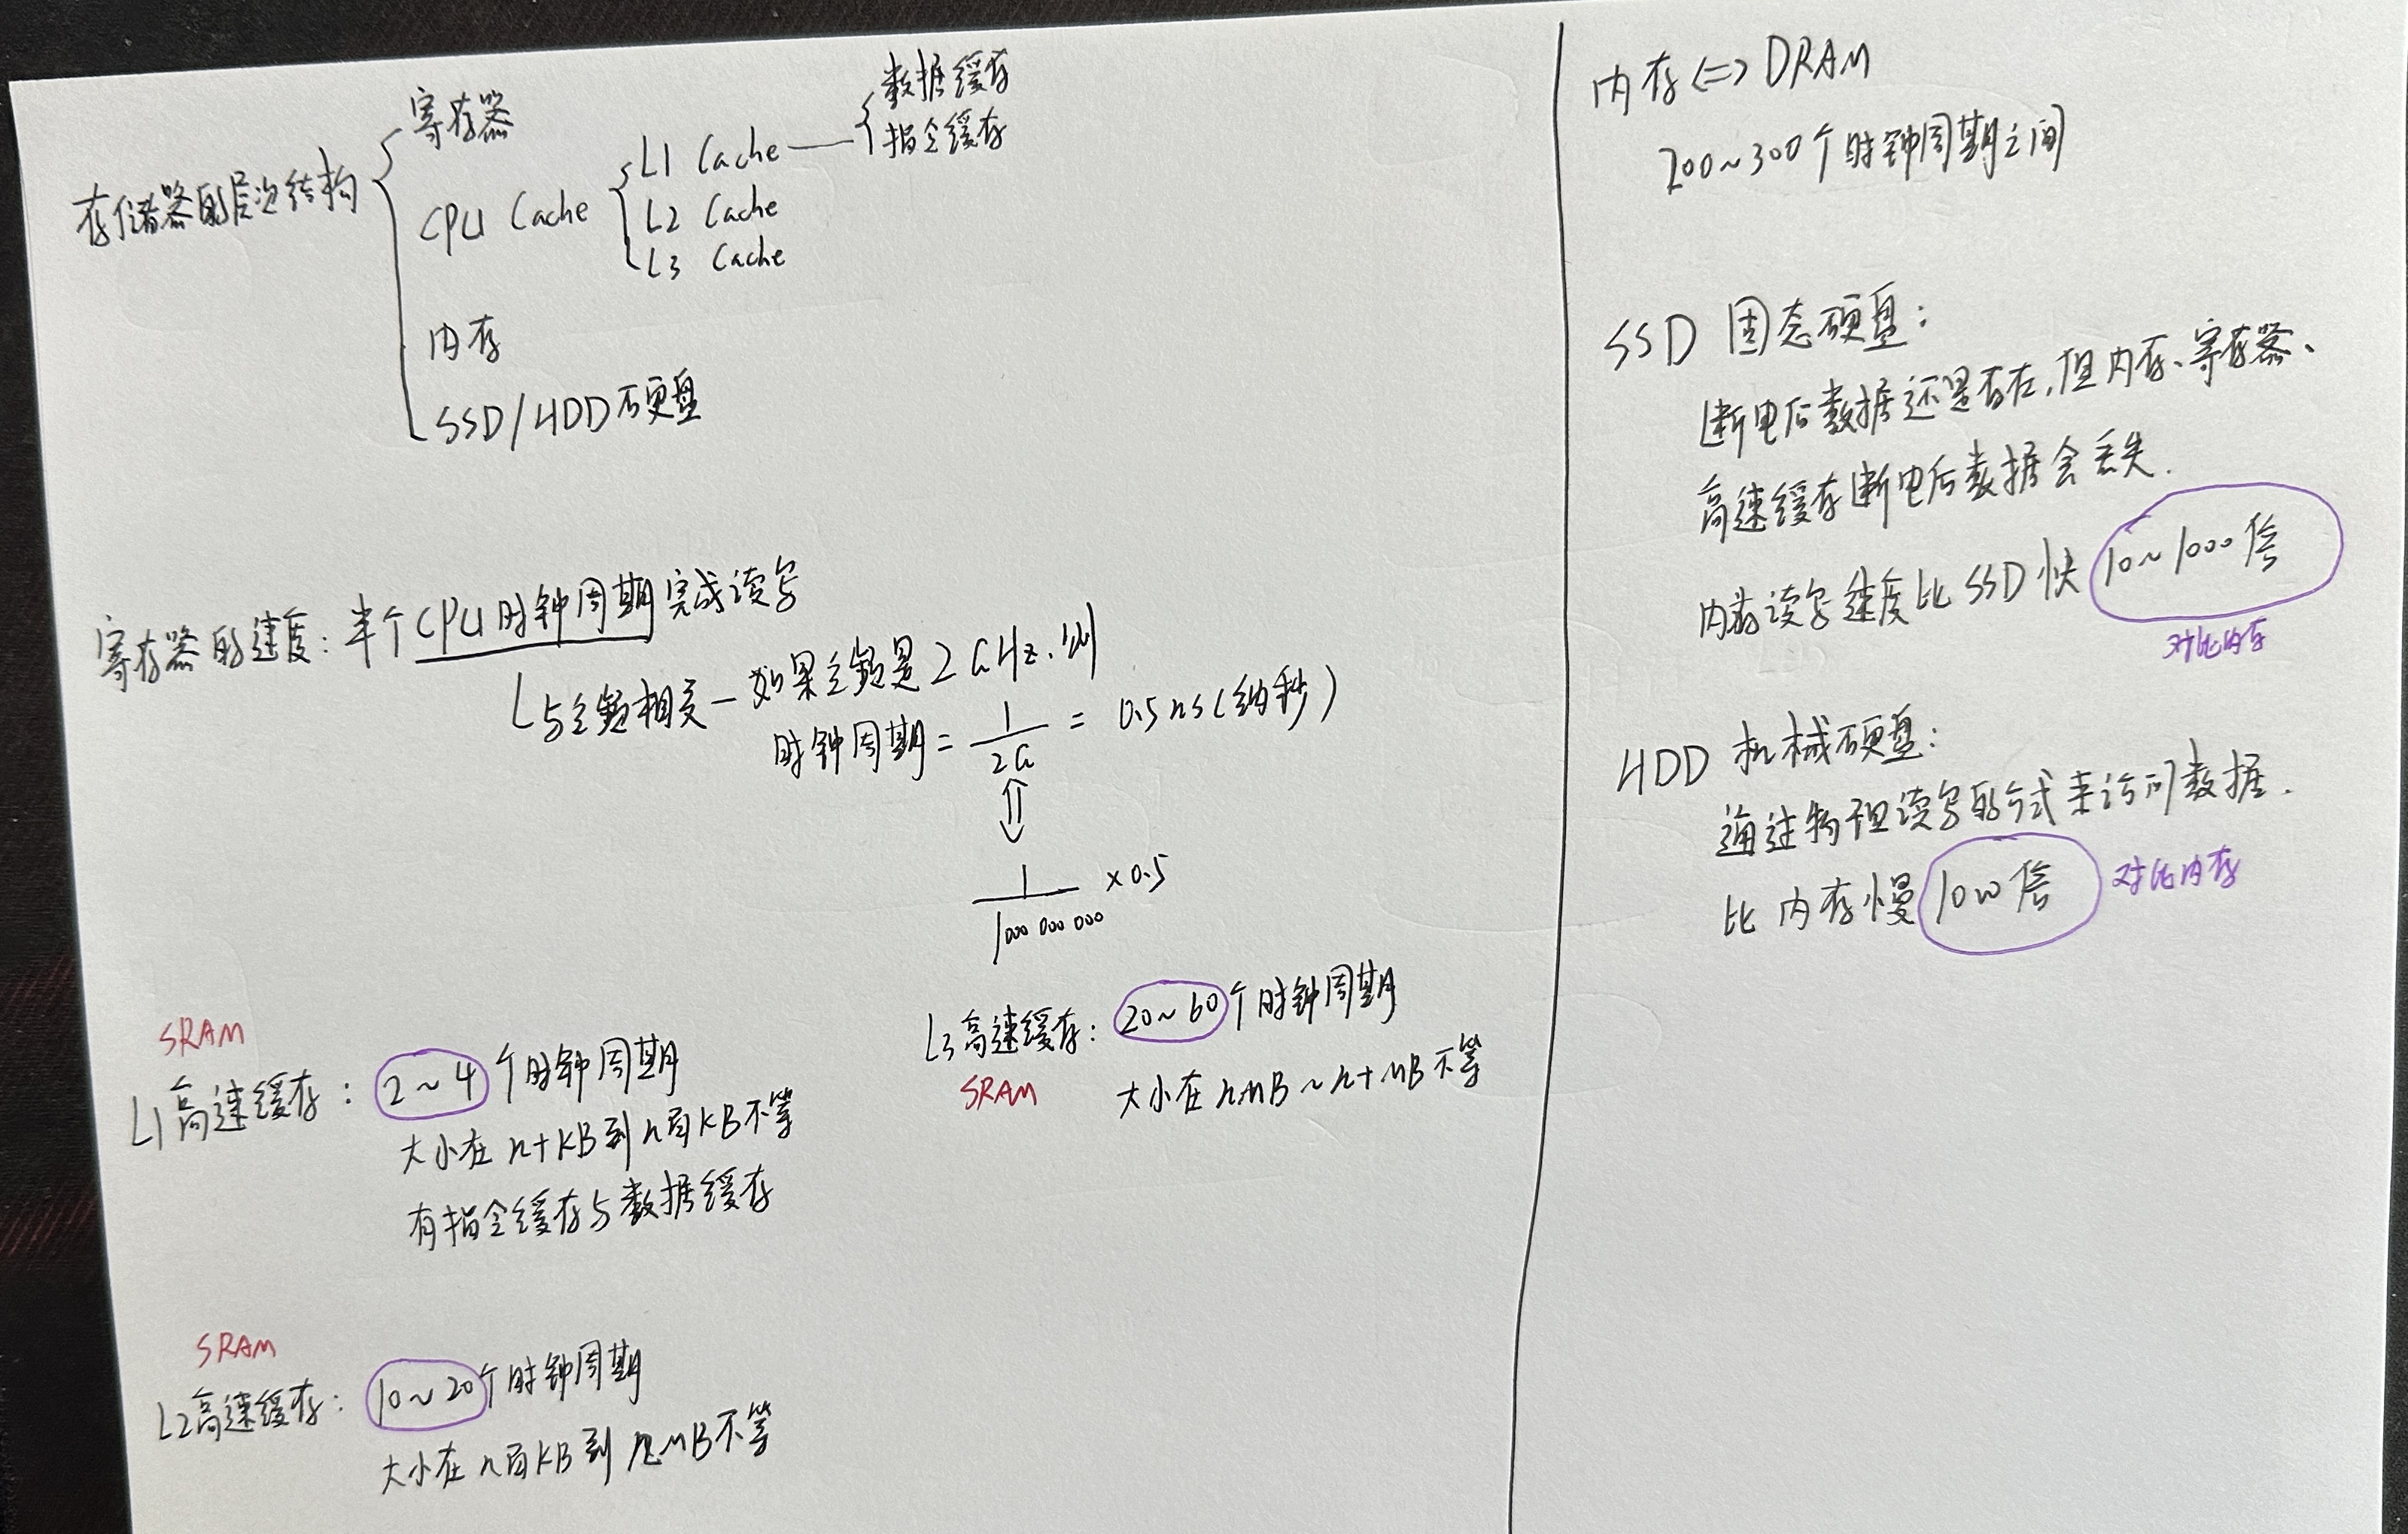 存储器的层次结构
寄存器
CPU Cache
L1 Cache
数据缓存
指令缓存
L2 Cache
L3 Cache
内存
SSD/HDD硬盘
寄存器的速度：半个CPU时钟周期完成读写
与主频相关－如果主频是2GHz，则
时钟周期 = 1/2G = 0.5ns(纳秒)
1/1000 000 000 × 0.5
SRAM
L1高速缓存：2~4个时钟周期
大小在n十KB到n百KB不等
有指令缓存与数据缓存
SRAM
L2高速缓存：10~20个时钟周期
大小在n百KB到nMB不等
L3高速缓存：20~60个时钟周期
SRAM
大小在nMB~n十MB不等
内存<=>DRAM
200~300个时钟周期之间
SSD 固态硬盘：
断电后数据还是存在，但内存、寄存器、
高速缓存断电后数据会丢失.
内存读写速度比SSD快10~1000倍
对比内存
HDD 机械硬盘：
通过物理读写的方式来访问数据.
比内存慢10w倍
对比内存